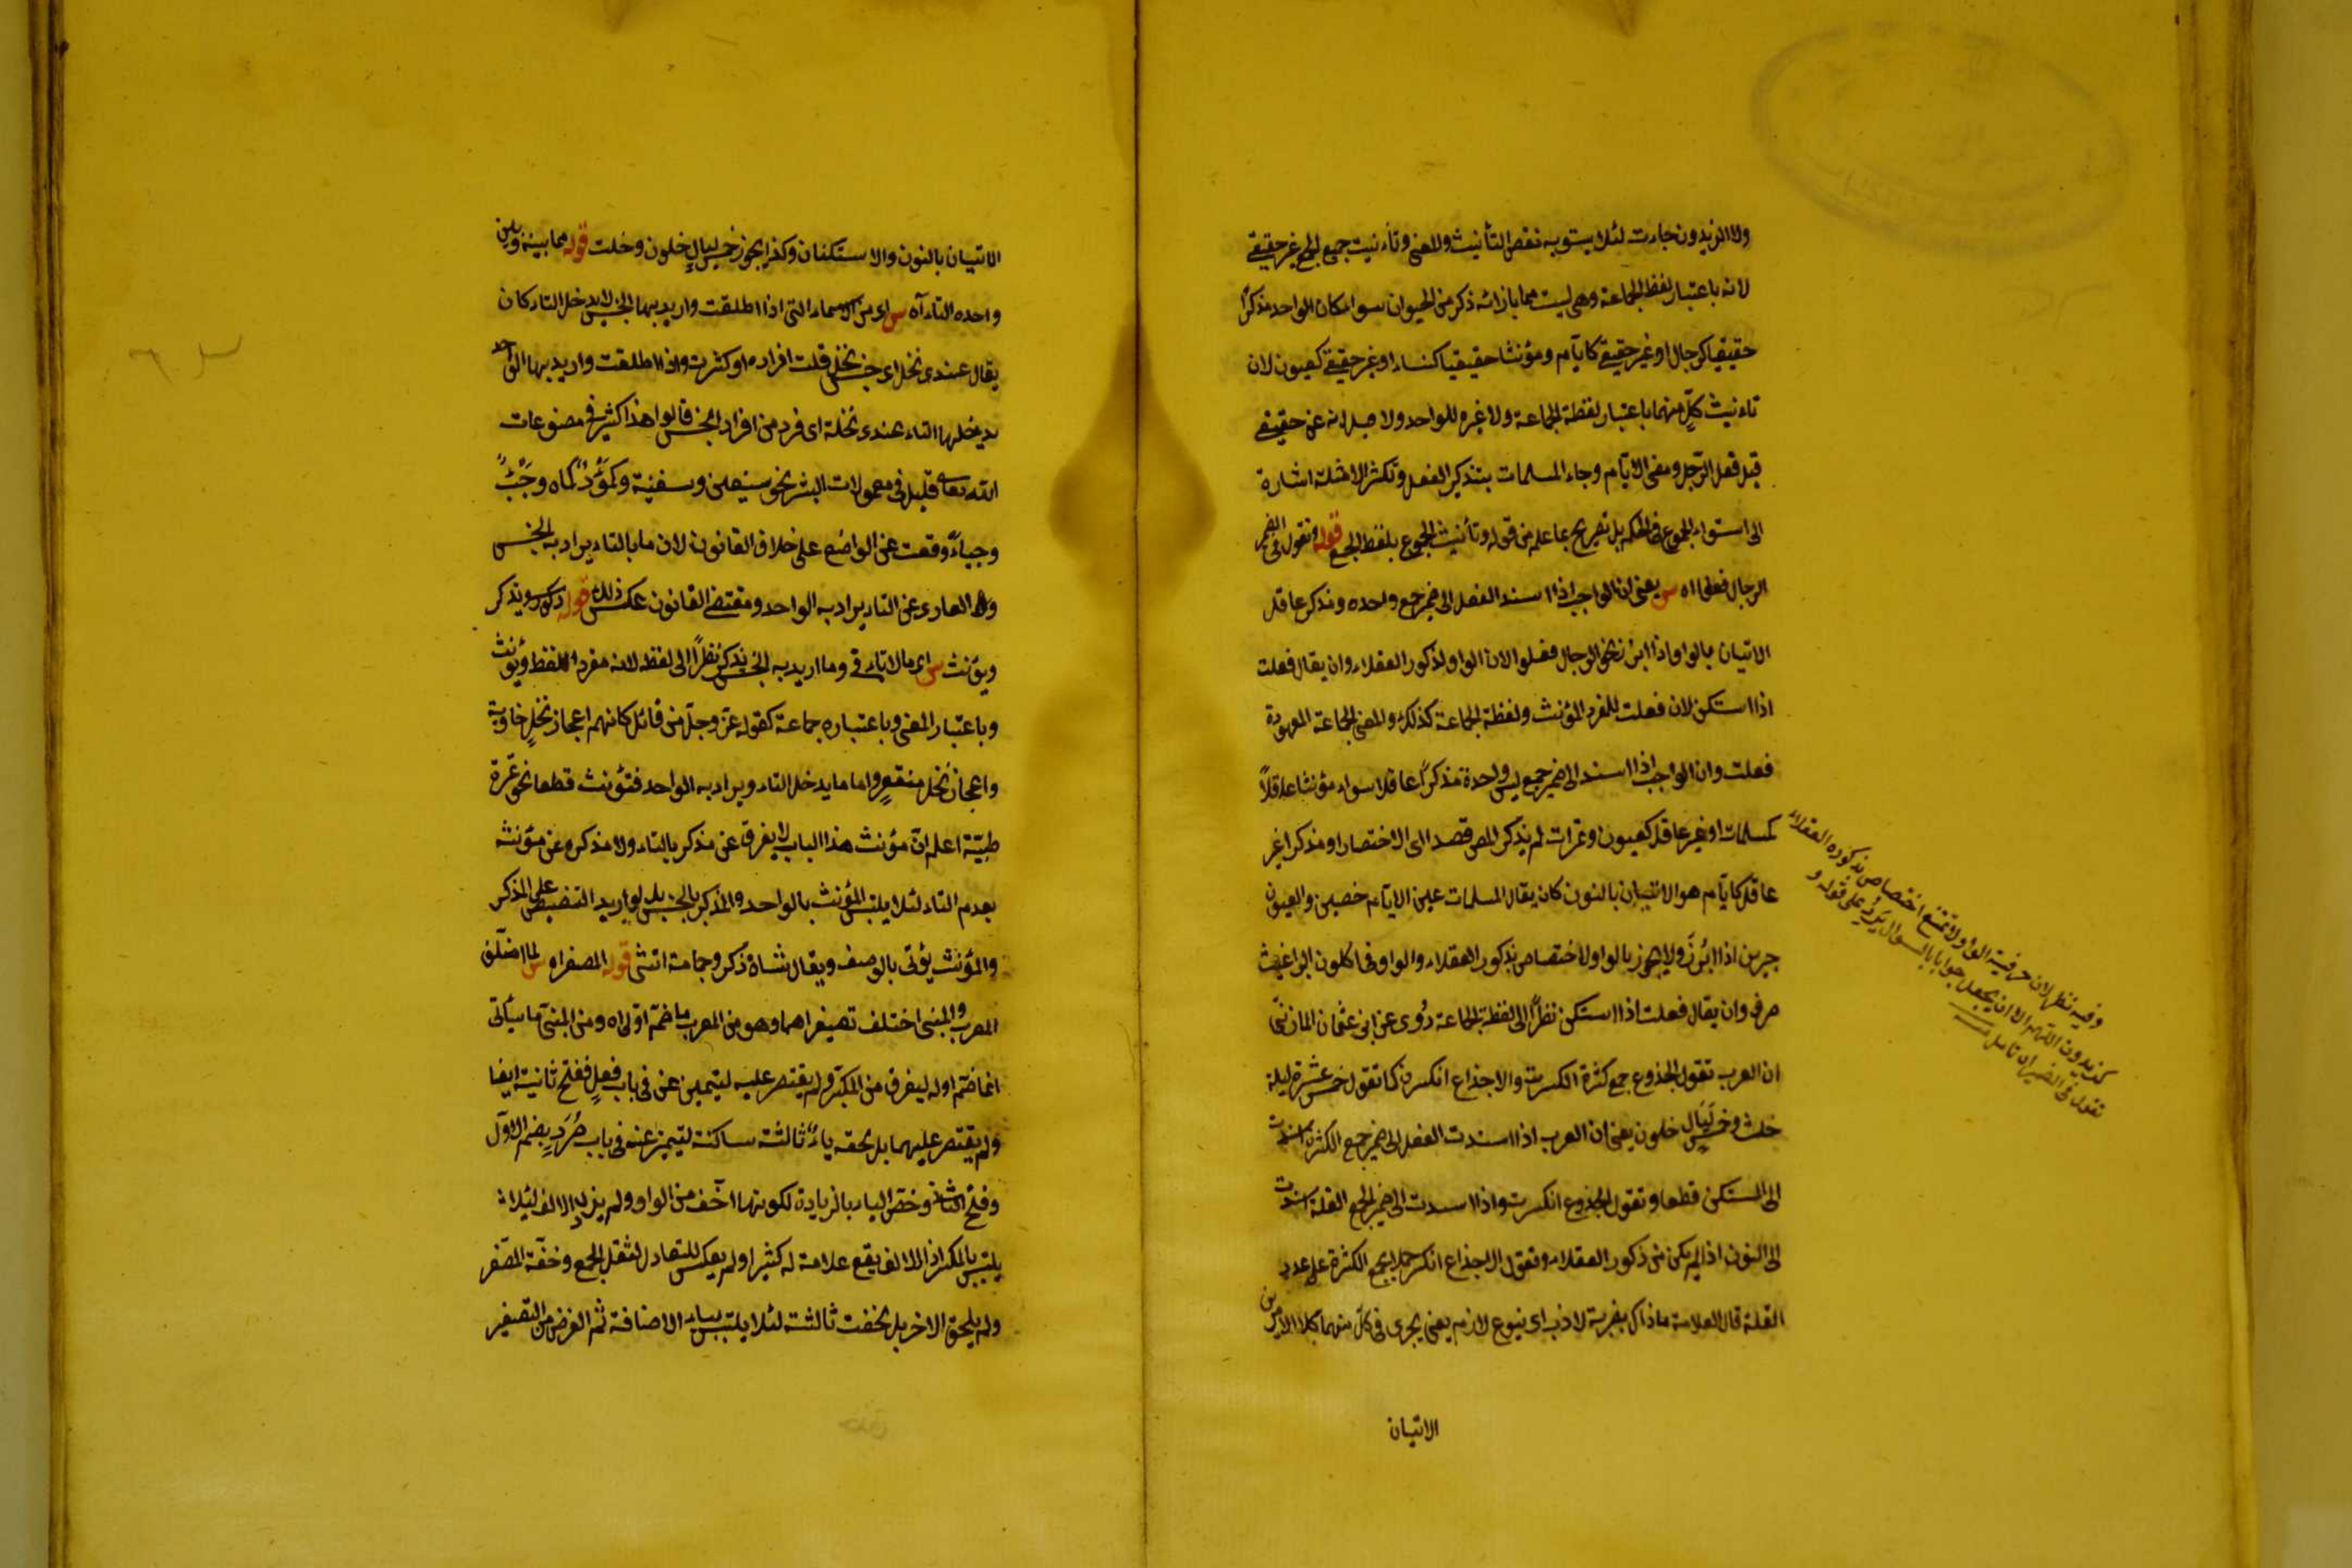 ولا الزيدون جاءت لئلا يستوبه نقص التأنيث والمعنى وتأنيث جميع الجمع غير حقيقي
لانه باعتبار لفظ الجماعة وهى ليست مما بازائه ذكر من الحيوان سواء كان الواحد مذكرًا
حقيقيا كرجال او غير حقيقى كايآم ومؤنثا حقيقيا كنساء او غير حقيقى كعيون لان
تاءنيث كلٍّ منهما باعتبار لفظة الجماعة ولا غيره للواحد ولا
قيل فعل الرّجل ومضى الايّام وجاء المسلمات بتذكير الفعل وتكثر الامثلة اشارة
الى استواء الجموع فى الحكم بل تصريح بما علم من قوله وتأنيث الجموع بلفظ الجمع قوله وتقول فى الضمير
الرجال فعلى اه س يعنى ان الواجب اذا اسند الفعل الى ضمير جمع واحده مذكر عاقل
الاتيان بالواو اذا ابرز نحو الرجال فعلوا لان الواو لذكور العقلاء وان يقال فعلت
اذا استكن لان فعلت للمفرد المؤنث ولفظة الجماعة كذلك والمعنى الجماعة المعهودة
فعلت وان الواجب اذا اسند الى ضمير جمع ليس واحدة مذكرًا عاقلا سواء مؤنثا عاقلاً
كمسلمات او غير عاقل كعيون وتمرات لم يذكر المص قصدا الى الاختصار او مذكرا غير
عاقل كايآم هو الاتيان بالنون كان يقال المسلمات علين الايآم خصين والعيون
جرين اذا ابرز ولا يجوز بالواو لاختصاص بذكور العقلاء والواو فى اكلون البراغيث
حرف وان يقال فعلت اذا استكن نظرًا الى لفظة الجماعة روى عن ابى عثمان المازنىّ
ان العرب تقول الجذوع جمع كثرة انكسرت والاجذاع انكسرن كما تقول خمس عشرة ليلة
خلت وخمس ليال خلون يعنى ان العرب اذا اسندت الفعل الى ضمير جمع الكثرة اسندت
الى المستكن قطعا وتقول الجذوع انكسرت واذا اسندت الى ضمير الجمع القلة اسندت
الى النون اذا لم يكن من ذكور العقلاء وتقول الاجذاع انكسرن حملا لجمع الكثرة على عدد
القلة قال العلامة ماذاك بضربة لازب اى بنوع لازم يعنى يجرى فى كلّ منهما كلا الامرين
وفيه نظر لان حرفية الواو لا تمنع اختصاص بذكوره العقلاء
كزيدون اللهم الا ان يجعل جوابا بالسؤال يَرِدُ على قوله و
تقول فى الضمير اه تأمل
الاتيان
الاتيان بالنون والاستكنان وكذا يجوز خمس ليالٍ خلون وخلت قوله مما بينه وبين
واحده التاء آه س اى من الاسماء التى اذا اطلقت واريد بها الجنس لا يدخل التاء كان
يقال عندى نخل اى جنس نخل قلت افراده او كثرت واذا اطلقت واريد بها الواحد
يدخلها التاء عندى نخلة اى فرد من افراد الجنس قالوا هذا كثير فى مصنوعات
الله تعالى قليل فى معمولات البشر نحو سفين وسفينة وكموءٌ كماه وجَبٌّ
وجباءً وقعت عن الواضع على خلاف القانون لان ما بالتاء يراد به الجنس
والعارى عن التاء يراد به الواحد ومقتضى القانون عكس ذلك قوله ويذكر
ويؤنث س اى مالا تاء فى وما اريد به الجنس يذكر نظرًا الى لفظه لانه مفرد اللفظ ويؤنث
وباعتبار المعنى وباعتباره جماعة كقوله عزّ وجلّ من قائل كانهم اعجاز نخلٍ خاوية
واعجاز نخل منقعرٍ واما ما يدخل التاء ويراد به الواحد فتؤنث قطعا نحو تمرة
طيّبة اعلم انّ مؤنث هذا الباب لا يفرق عن مذكر بالتاء ولا مذكره عن مؤنثه
بعدم التاء لئلا يلتبس المؤنث بالواحد والمذكر بالجنس بل لو اريد التنصيص على المذكر
والمؤنث يؤتى بالوصف ويقال شاة ذكر وحمامة انثى قوله المصغر اه س لما اختلف
المعرب والمبنى اختلف تصغيراهما وهو من المعرب ما ضمّ اوّله اه ومن المبنىّ ما سيأتى
انما ضمّ اوله ليفرق من المكبّر ولم يقتصر عليه ليتميز عن فى باب فعل ففتح ثانية ايضا
ولم يقتصر عليهما بل لحقه ياءً ثالثة ساكنة ليتميز عنه فى باب صُرَدٍ بضم الاوّل
وفتح الثانى وخصّ الياء بالزيادة لكونها اخف من الواو ولم يزد الالف لئلا
يلتبس بالمكسر اذ الالف يقع علامة له كثيرا ولم يعكس للتعادل لثقل الجمع وخفّة المصّغر
ولم يلحق الاخر بل لحقت ثالثة لئلا يلتبس بياء الاضافة ثم الغرض من التصغير